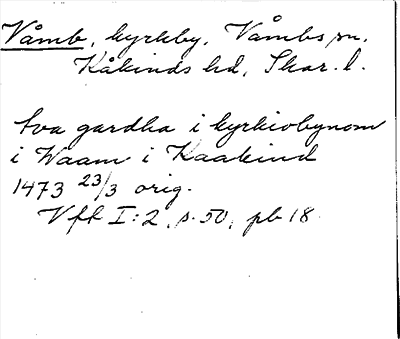 Våmb, kyrkby, Våmbs sn,
Kåkinds hd, Skar. l.
tva gardha i kyrkiobynom
i Waam i Kaakind
1473 23/3 orig.
Vfk I:2, s. 50, pb 18